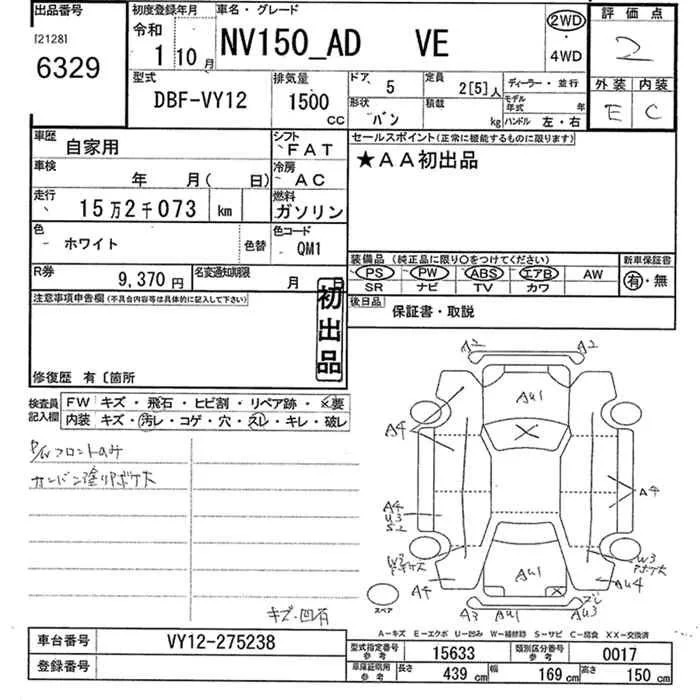 出品番号
[2128]
6329
初度登録年月
令和
1 10月
車名・グレード
NV150_AD VE
2WD
・
4WD
評価点
2
外装 内装
E C
型式
DBF-VY12
排気量
1500
CC
ドア 5
形状 バン
定員 2[5]人
積載 kg
ディーラー・並行
モデル年式 年
ハンドル 左・右
車歴
自家用
シフト
FAT
車検
年 月( 日)
冷房
AC
走行
15万2千073 km
燃料
ガソリン
色
ホワイト
色替
色コード
QM1
R券
9,370円
名変通知期限
月 日
セールスポイント(正常に機能するものに限ります)
★AA初出品
装備品 (純正品に限り○をつけてください)
PS PW ABS エアB AW
SR ナビ TV カワ
新車保証書
有・無
後日品
保証書・取説
注意事項申告欄(不具合内容等は具体的に記入して下さい)
初出品
修復歴 有〔箇所
検査員記入欄
FW キズ・飛石・ヒビ割・リペア跡・×要
内装 キズ・汚レ・コゲ・穴・スレ・キレ・破レ
P/Wフロントのみ
カンバン塗りボケ大
キズ・凹有
A2 A2
AU1
A4
A4
A4
U3
S2
W3
ボケ大
W3
ボケ大
AU1
A4
AU4
スペア
A3 AU1 AU3
A-キズ E-エクボ U-凹み W-補修跡 S-サビ C-腐食 XX-交換済
車台番号
VY12-275238
登録番号
型式指定番号
参考
15633
類別区分番号
参考
0017
車庫証明用
参考
長さ 439 cm
幅 169 cm
高さ 150 cm